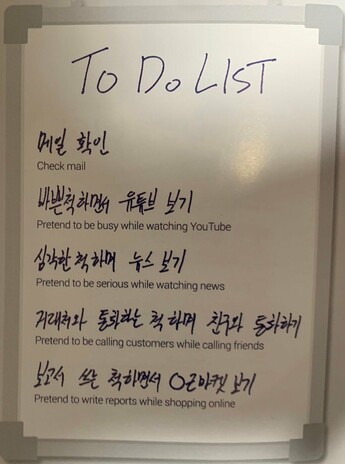 TO DO LIST
메일 확인
Check mail
바쁜척 하면서 유튜브 보기
Pretend to be busy while watching YouTube
심각한 척 하며 뉴스 보기
Pretend to be serious while watching news
거래처와 통화하는 척 하며 친구와 통화하기
Pretend to be calling customers while calling friends
보고서 쓰는 척 하면서 O근마켓 보기
Pretend to write reports while shopping online